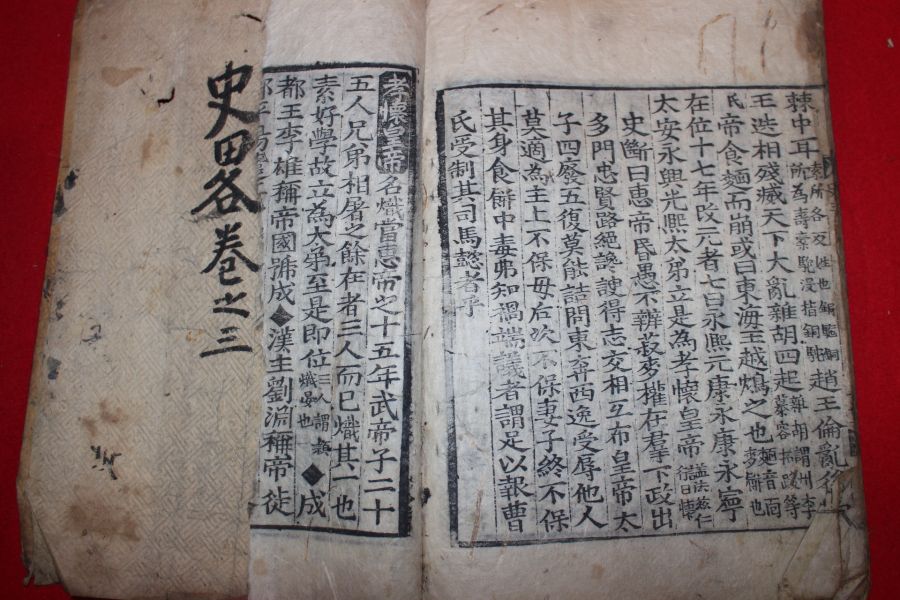 棘中耳 趙王倫亂
王迭相殘滅天下大亂雜胡四起
氏帝食麵而崩或曰東海王越鴆之也 麵音面 麥餅也
在位十七年改元者七曰永熙元康永康永寧
太安永興光熙太弟立是爲孝懷皇帝 謚法慈仁 行曰懷
史斷曰惠帝昏愚不辨菽麥權在羣下政出
多門忠賢路絕讒諛得志交相互布皇帝太
子四廢五復莫能詰問東奔西逸受辱他人
莫適為主上不保母后次不保妻子終不保
其身食餠中毒弗知禍端議者謂足以報曹
氏受制其司馬懿者乎
孝懷皇帝名熾當惠帝之十五年武帝子二十
五人兄弟相屠之餘在者三人而已熾其一也
素好學故立為大弟至是即位 三人謂 熾晏也 ◆成
都王李雄稱帝國號成◆漢主劉淵稱帝徙
史畧卷之三